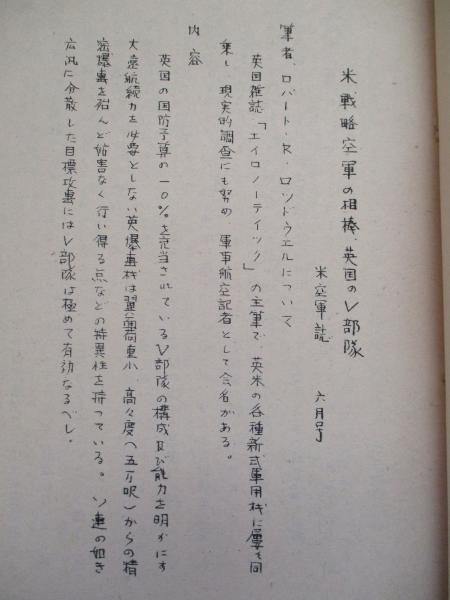 米戦略空軍の相棒、英国のV部隊
米空軍誌　六月号
筆者、ロバート・R・ロッドウエルについて
英国雑誌「エイロノーティック」の主筆で、英米の各種新式軍用機に屡々同
乗し、現実的調査にも努め、軍事航空記者として令名がある。
内容
英国の国防予算の一〇%を充当されているV部隊の構成及び能力を明かにす
大遠航続力を必要としない英爆撃機は翼面荷重小、高々度(五万呎)からの精
密爆撃を殆んど妨害なく行い得る点などの特異性を持っている。ソ連の如き
広汎に分散した目標攻撃にはV部隊は極めて有効なるべし。